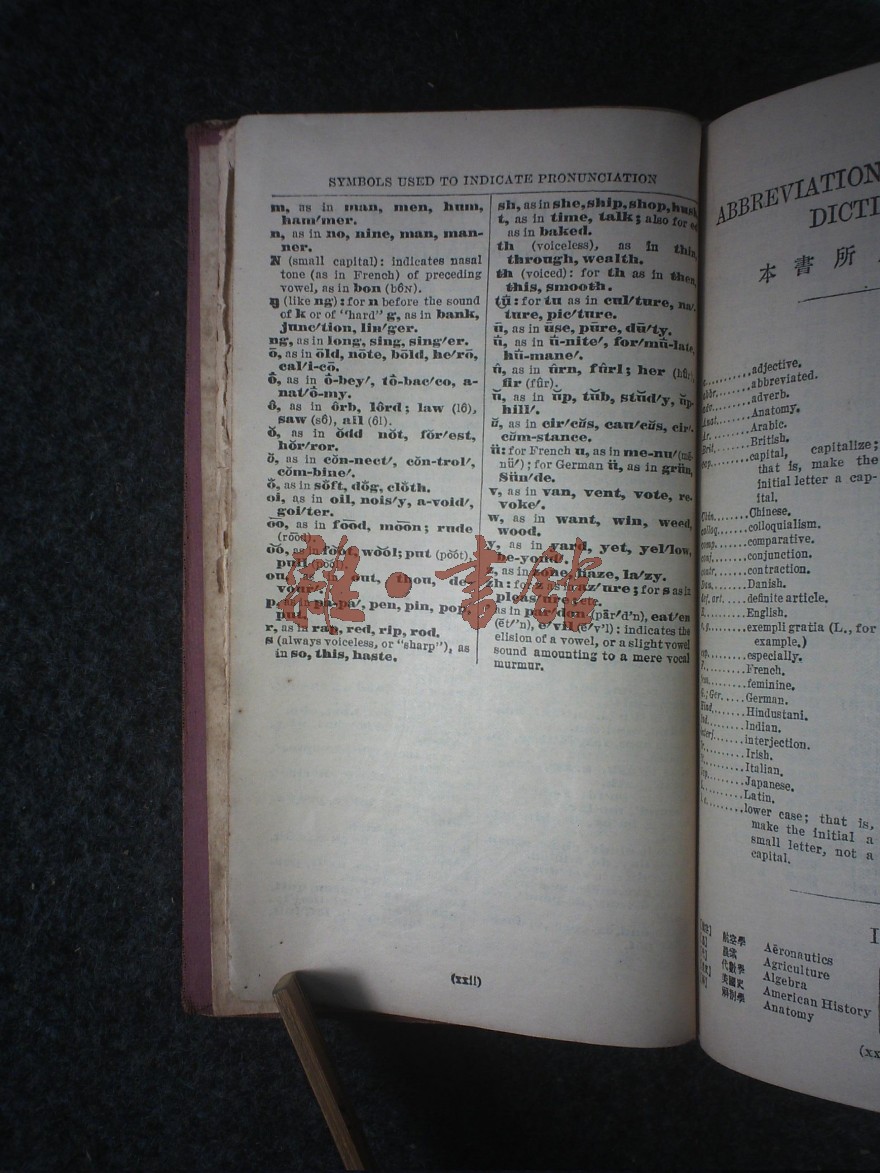 SYMBOLS USED TO INDICATE PRONUNCIATION
m, as in man, men, hum,
ham′mer.
n, as in no, nine, man, man-
ner.
N (small capital): indicates nasal
tone (as in French) of preceding
vowel, as in bon (bôN).
ŋ (like ng): for n before the sound
of k or of "hard" g, as in bank,
junc′tion, lin′ger.
ng, as in long, sing, sing′er.
ō, as in ōld, nōte, bōld, he′rō,
cal′i-cō.
ô, as in ô-bey′, tô-bac′co, a-
nat′ô-my.
ô, as in ôrb, lôrd; law (lô),
saw (sô), ail (ôl).
ŏ, as in ŏdd nŏt, fŏr′est,
hŏr′ror.
ŏ, as in cŏn-nect′, cŏn-trol′,
cŏm-bine′.
ŏ, as in sŏft, dŏg, clŏth.
oi, as in oil, nois′y, a-void′,
goi′ter.
ōō, as in fōōd, mōōn; rude
(rōōd).
ŏŏ, as in fŏŏt, wŏŏl; put (pŏŏt),
pull (pŏŏl).
ou, in out, thou, de-
vour′.
p, as in pa-pa′, pen, pin, pop,
put.
r, as in ran, red, rip, rod.
s (always voiceless, or "sharp"), as
in so, this, haste.
sh, as in she, ship, shop, hush
t, as in time, talk; also for ed
as in baked.
th (voiceless), as in thin,
through, wealth.
th (voiced): for th as in then,
this, smooth.
tû: for tu as in cul′ture, na′-
ture, pic′ture.
ū, as in ūse, pūre, dū′ty.
û, as in û-nite′, for′mû-late,
hû-mane′.
û, as in ûrn, fûrl; her (hûr),
fir (fûr).
ŭ, as in ŭp, tŭb, stŭd′y, ŭp-
hill′.
ŭ, as in cir′cŭs, cau′cŭs, cir′-
cŭm-stance.
ü: for French u, as in me-nu′ (mē-
nü′); for German ü, as in grün,
Sün′de.
v, as in van, vent, vote, re-
voke′.
w, as in want, win, weed,
wood.
y, as in yard, yet, yel′low,
be-yond′.
z, as in zone, haze, la′zy.
zh: for z as in az′ure; for s as in
pleas′ure; etc.
as in par′don (pär′d'n), eat′en
(ēt′'n), e′vil (ē′v'l): indicates the
elision of a vowel, or a slight vowel
sound amounting to a mere vocal
murmur.
(xxii)
雜·書館
ABBREVIATION
DICTI
本書所
adjective.
abbr. abbreviated.
adv. adverb.
Anat. Anatomy.
Ar. Arabic.
Brit. British.
cap. capital, capitalize;
that is, make the
initial letter a cap-
ital.
Chin. Chinese.
colloq. colloquialism.
comp. comparative.
conj. conjunction.
contr. contraction.
Dan. Danish.
def. art. definite article.
E. English.
e.g. exempli gratia (L., for
example.)
esp. especially.
F. French.
fem. feminine.
G.; Ger. German.
Hind. Hindustani.
Ind. Indian.
interj. interjection.
Ir. Irish.
It. Italian.
Jap. Japanese.
L. Latin.
l.c. lower case; that is,
make the initial a
small letter, not a
capital.
航空學 Aëronautics
農業 Agriculture
代數學 Algebra
美國史 American History
解剖學 Anatomy
(xx